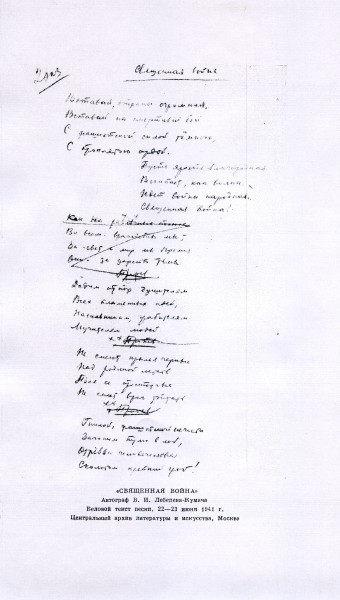 Священная война
Вставай, страна огромная,
Вставай на смертный бой
С фашистской силой тёмною,
С проклятою ордой.
Пусть ярость благородная
Вскипает, как волна,
Идёт война народная,
Священная война!
Как два
Во всем враждебны мы;
За свет и мир мы боремся
Они за царство тьмы
Припев
Дадим отпор душителям
Всех пламенных идей,
Насильникам, грабителям
Мучителям людей
Припев
Не смеют крылья черные
Над родиной летать
Поля ее просторные
Не смеет враг топтать
Припев
Гнилой фашистской нечисти
Загоним пулю в лоб,
Отребью человечества
Сколотим крепкий гроб!
«СВЯЩЕННАЯ ВОЙНА»
Автограф В. И. Лебедева-Кумача
Беловой текст песни, 22—23 июня 1941 г.
Центральный архив литературы и искусства, Москва